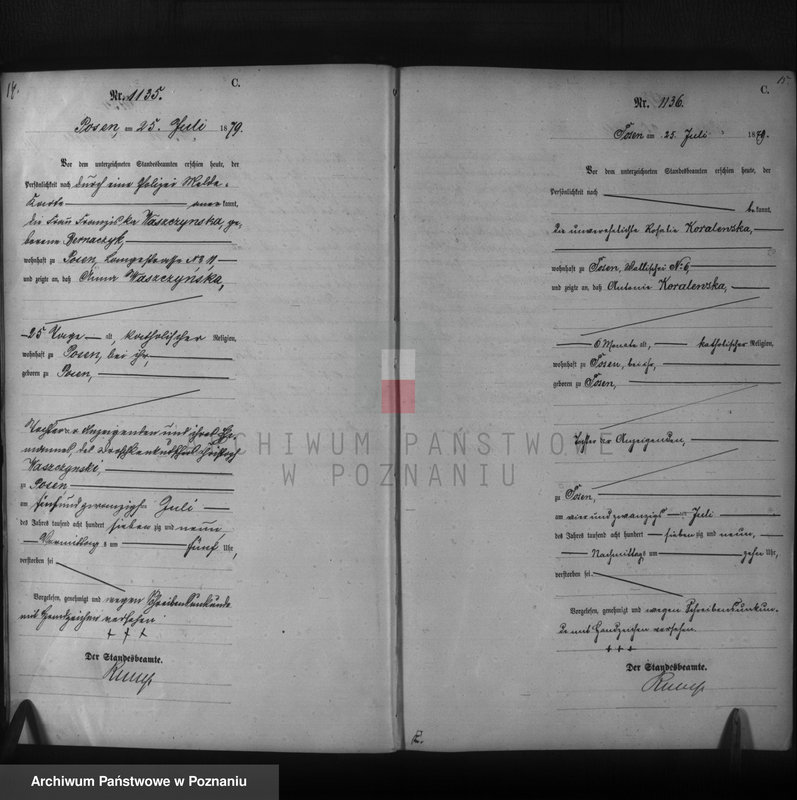 14.
C.
Nr. 1135.
Posen, am 25. Juli 1879.
Vor dem unterzeichneten Standesbeamten erschien heute, der
Persönlichkeit nach durch eine Polizei Melde-
Karte anerkannt,
die Frau Franziska Waszczynska, ge-
borene Bernaczyk,
wohnhaft zu Posen, Langestrasse No
und zeigte an, daß Anna Waszczyńska,
25 Tage alt, katholischer Religion,
wohnhaft zu Posen, bei ihr,
geboren zu Posen,
Tochter der Anzeigenden und ihres Ehe-
mannes, des Droschkenkutschers
Waszczynski,
zu Posen
am fünfundzwanzigst Juli
des Jahres tausend acht hundert sieben zig und neun
Vormittags um fünf Uhr,
verstorben sei
Vorgelesen, genehmigt und wegen Schreibensunkunde
mit Handzeichen versehen
+ + +
Der Standesbeamte.
15
C.
Nr. 1136.
Posen am 25. Juli 1879.
Vor dem unterzeichneten Standesbeamten erschien heute, der
Persönlichkeit nach
bekannt,
die unverehelichte Rosalie Koralewska,
wohnhaft zu Posen, Wallischei No 6,
und zeigte an, daß Antonie Koralewska,
6 Monate alt, katholischer Religion,
wohnhaft zu Posen, bei ihr,
geboren zu Posen,
Tochter der Anzeigenden,
zu Posen,
am vier und zwanzigst Juli
des Jahres tausend acht hundert sieben zig und neun,
Nachmittags um zehn Uhr,
verstorben sei
Vorgelesen, genehmigt und wegen Schreibensunkun-
de mit Handzeichen versehen.
+ + +
Der Standesbeamte.
ARCHIWUM PAŃSTWOWE
W POZNANIU
Archiwum Państwowe w Poznaniu